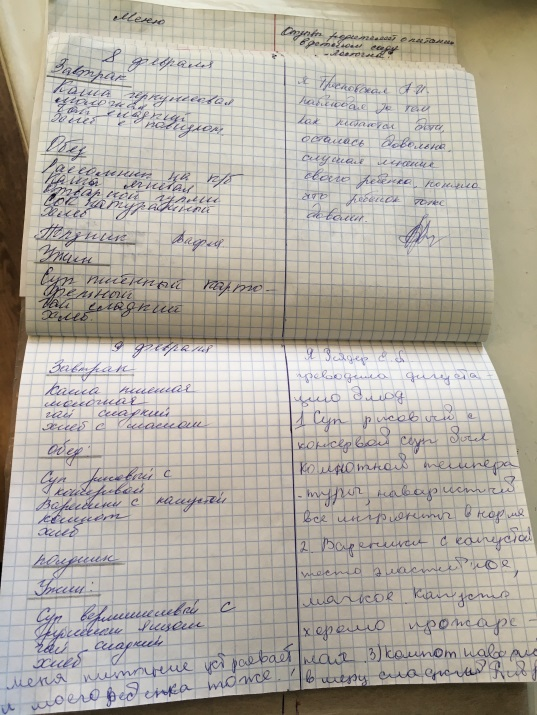 Меню
Отзыв родителей о питании
в детском саду
8 февраля
Завтрак
Каша геркулесовая
молочная
чай сладкий
хлеб с повидлом
Обед
Рассольник на к/б
Каша ячневая
отварной гуляш
сок натуральный
хлеб
Полдник Вафля
Ужин
Суп пшенный карто-
фельный
чай сладкий
хлеб
Я А.И.
наблюдая за тем
как питаются дети,
осталась довольна,
слушая мнение
своего ребенка, поняла
что ребенок тоже
доволен.
9 февраля
Завтрак
Каша пшеная
молочная
чай сладкий
хлеб с маслом
Обед:
Суп рисовый с
консервой
Вареники с капустой
компот
хлеб
полдник
Ужин:
Суп вермишелевый с
яйцом
чай сладкий
хлеб
меня питание устраевает
и моего ребенка тоже.
Я С.Б.
проводила дигуста
цию блюд
1 Суп рисовый с
консервой суп был
комнотной темпера
-туры, наваристый
все ингрпенты в норме
2. Вареники с капустой
тесто эластичное,
мягкое капуста
хорошо прожаре-
ная 3) компот
в меру сладкий